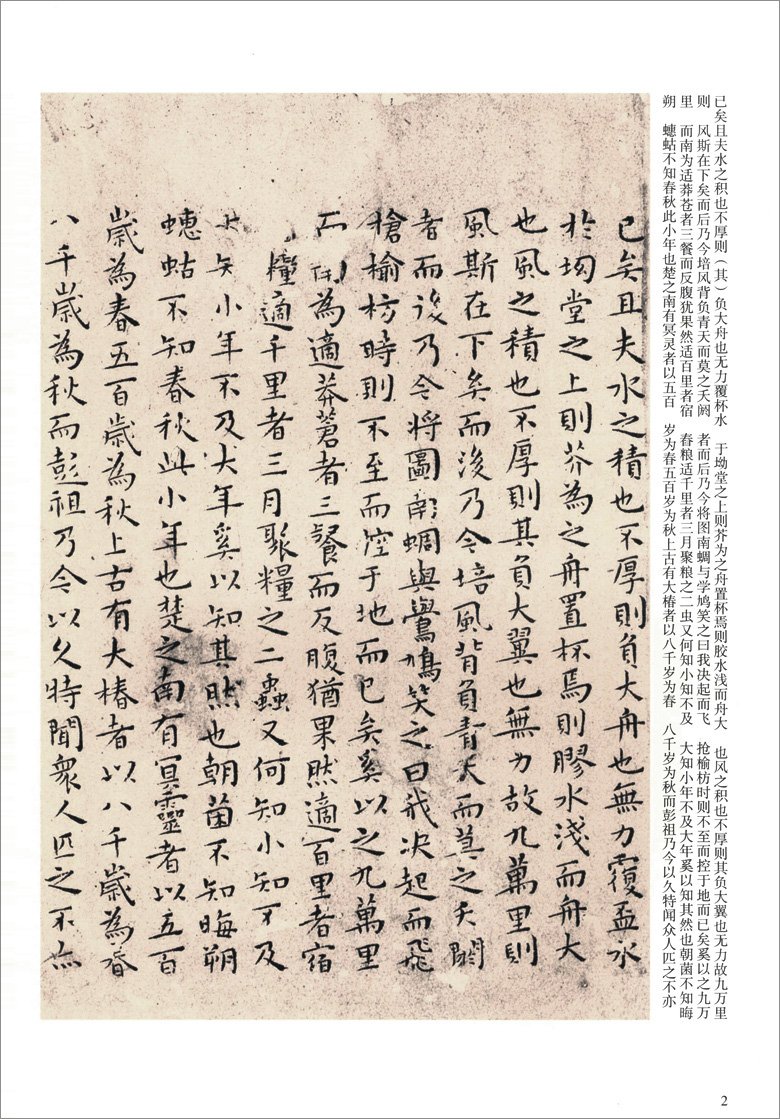 已矣且夫水之积也不厚则（其）负大舟也无力覆杯水　于坳堂之上则芥为之舟置杯焉则胶水浅而舟大　也风之积也不厚则其负大翼也无力故九万里
则　风斯在下矣而后乃今培风背负青天而莫之夭阏　者而后乃今将图南蜩与学鸠笑之曰我决起而飞　抢榆枋时则不至而控于地而已矣奚以之九万
里　而南为适莽苍者三餐而反腹犹果然适百里者宿　春粮适千里者三月聚粮之二虫又何知小知不及　大知小年不及大年奚以知其然也朝菌不知晦
朔　蟪蛄不知春秋此小年也楚之南有冥灵者以五百　岁为春五百岁为秋上古有大椿者以八千岁为春　八千岁为秋而彭祖乃今以久特闻众人匹之不亦
已矣且夫水之積也不厚則負大舟也無力覆盃水
於坳堂之上則芥為之舟置杯焉則膠水淺而舟大
也風之積也不厚則其負大翼也無力故九萬里則
風斯在下矣而後乃今培風背負青天而莫之夭閼
者而後乃今將圖南蜩與鷽鳩笑之曰我決起而飛
搶榆枋時則不至而控于地而已矣奚以之九萬里
而南為適莽蒼者三餐而反腹猶果然適百里者宿
糧適千里者三月聚糧之二蟲又何知小知不及
大知小年不及大年奚以知其然也朝菌不知晦朔
蟪蛄不知春秋此小年也楚之南有冥靈者以五百
歲為春五百歲為秋上古有大椿者以八千歲為春
八千歲為秋而彭祖乃今以久特聞衆人匹之不亦
2